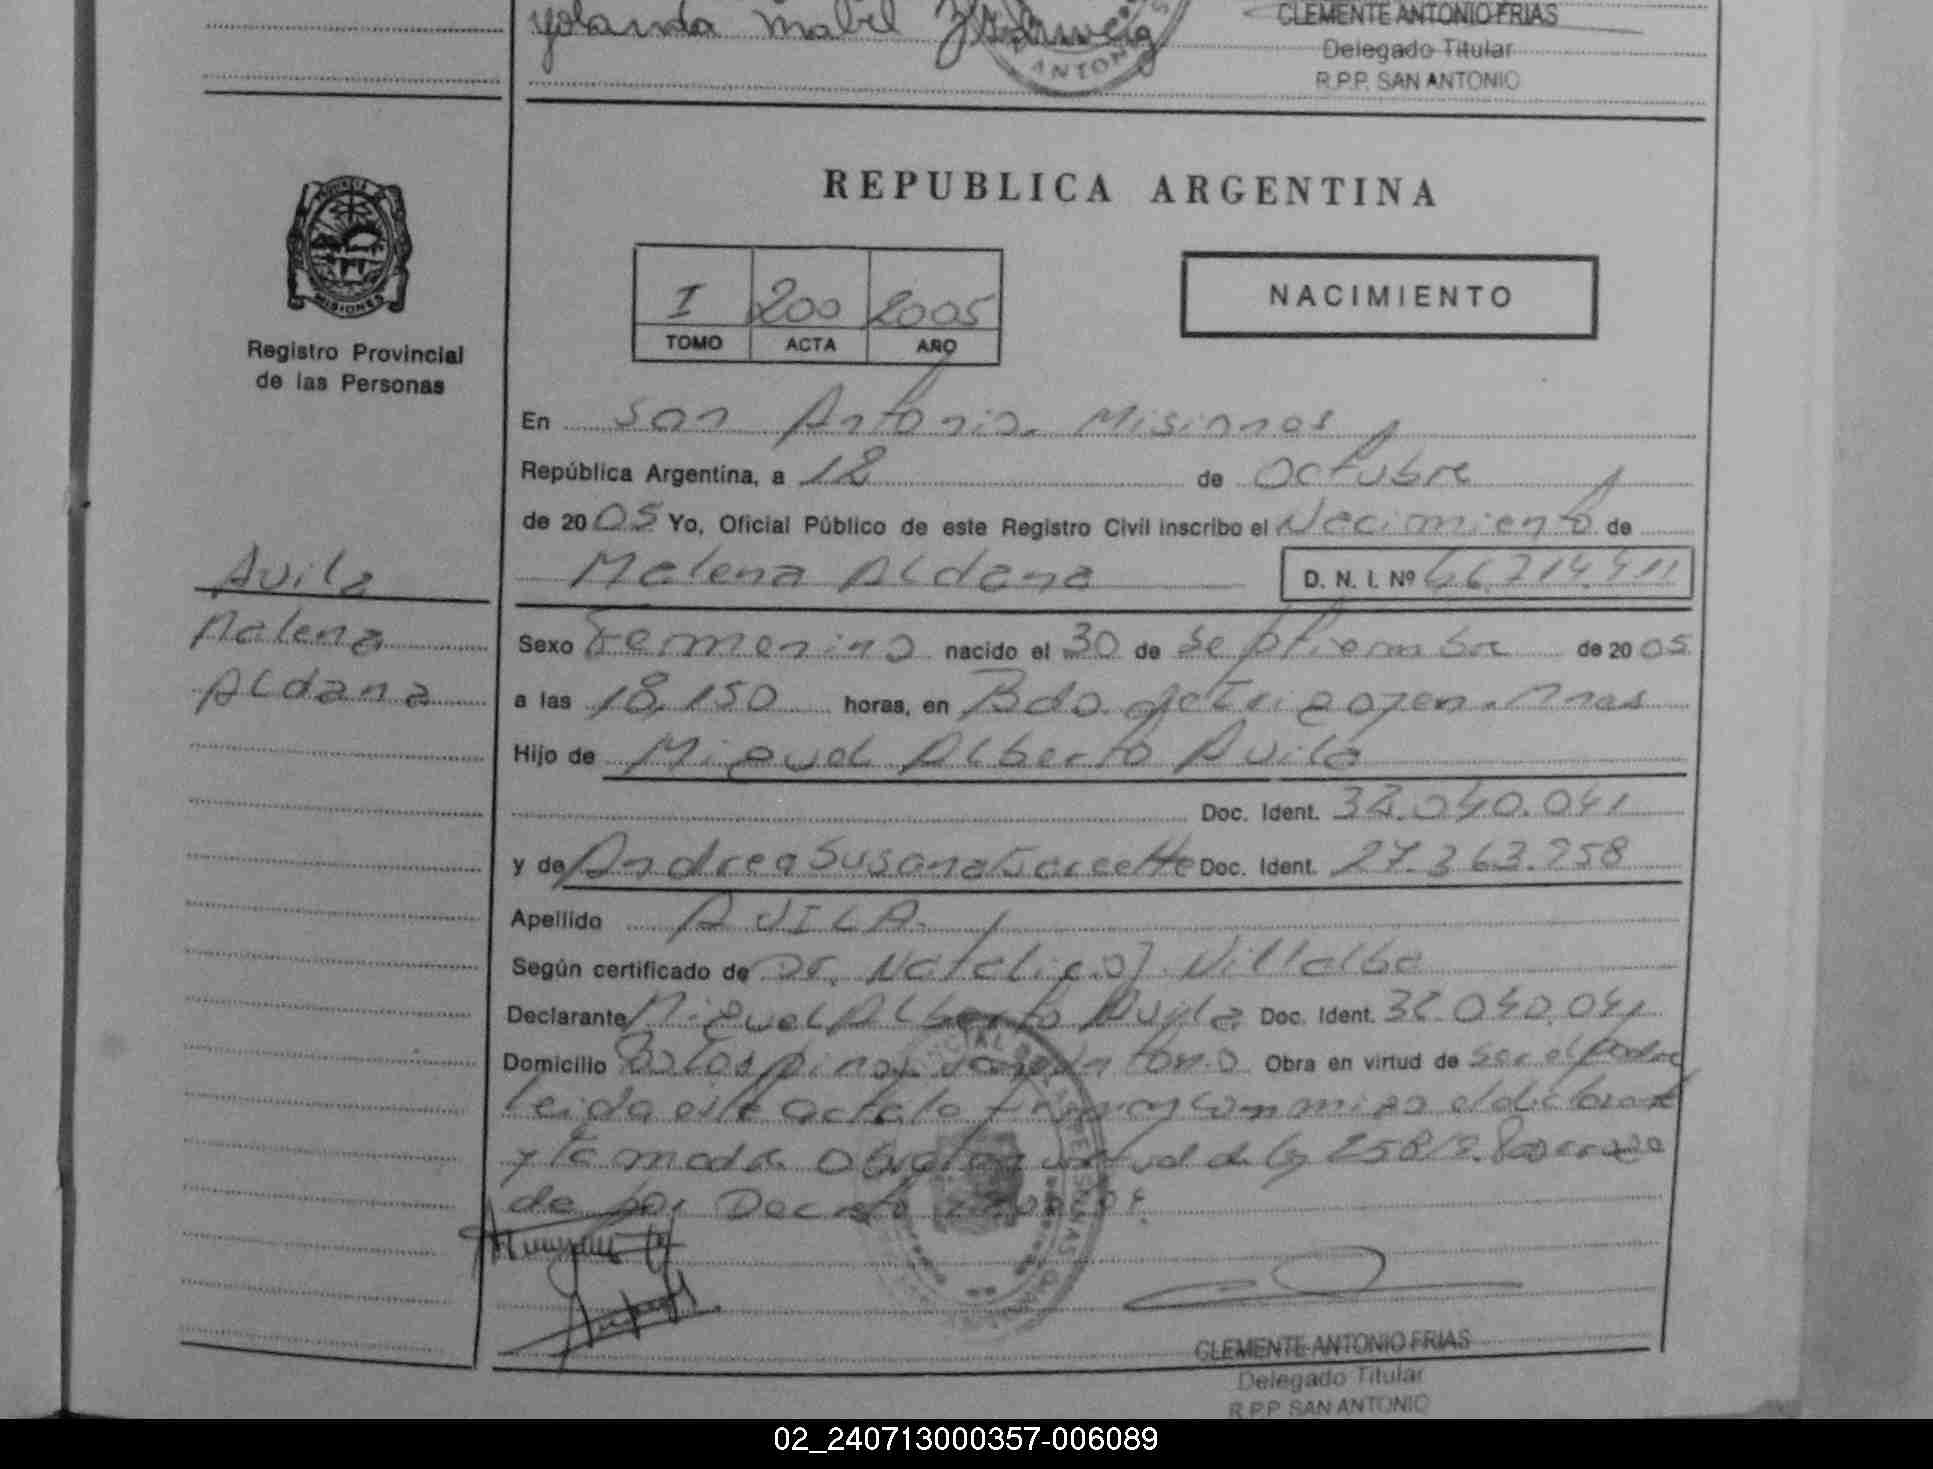 Yolanda Mabel
CLEMENTE ANTONIO FRIAS
Delegado Titular
R.P.P. SAN ANTONIO
ANTONIO
REPUBLICA ARGENTINA
MISIONES
Registro Provincial
de las Personas
I 200 2005
TOMO ACTA AÑO
NACIMIENTO
En San Antonio. Misiones
República Argentina, a 18 de Octubre
de 2005 Yo, Oficial Público de este Registro Civil inscribo el Nacimiento de
Malena Aldana D. N. I. Nº
Avila
Malena
Aldana
Sexo Femenino nacido el 30 de Septiembre de 2005
a las 18,150 horas, en Bdo. de Irigoyen. Mnes
Hijo de Miguel Alberto Avila
Doc. Ident. 32.040.041
y de Andrea Susana Doc. Ident. 27.363.758
Apellido AVILA.
Según certificado de Dr. Natalicio J. Villalba
Declarante Miguel Alberto Avila Doc. Ident. 32.040.041
Domicilio San Antonio Obra en virtud de ser el padre
leida este acta la firman conmigo el declarante
y la madre
de por Decreto
CLEMENTE ANTONIO FRIAS
Delegado Titular
R.P.P. SAN ANTONIO
02_240713000357-006089